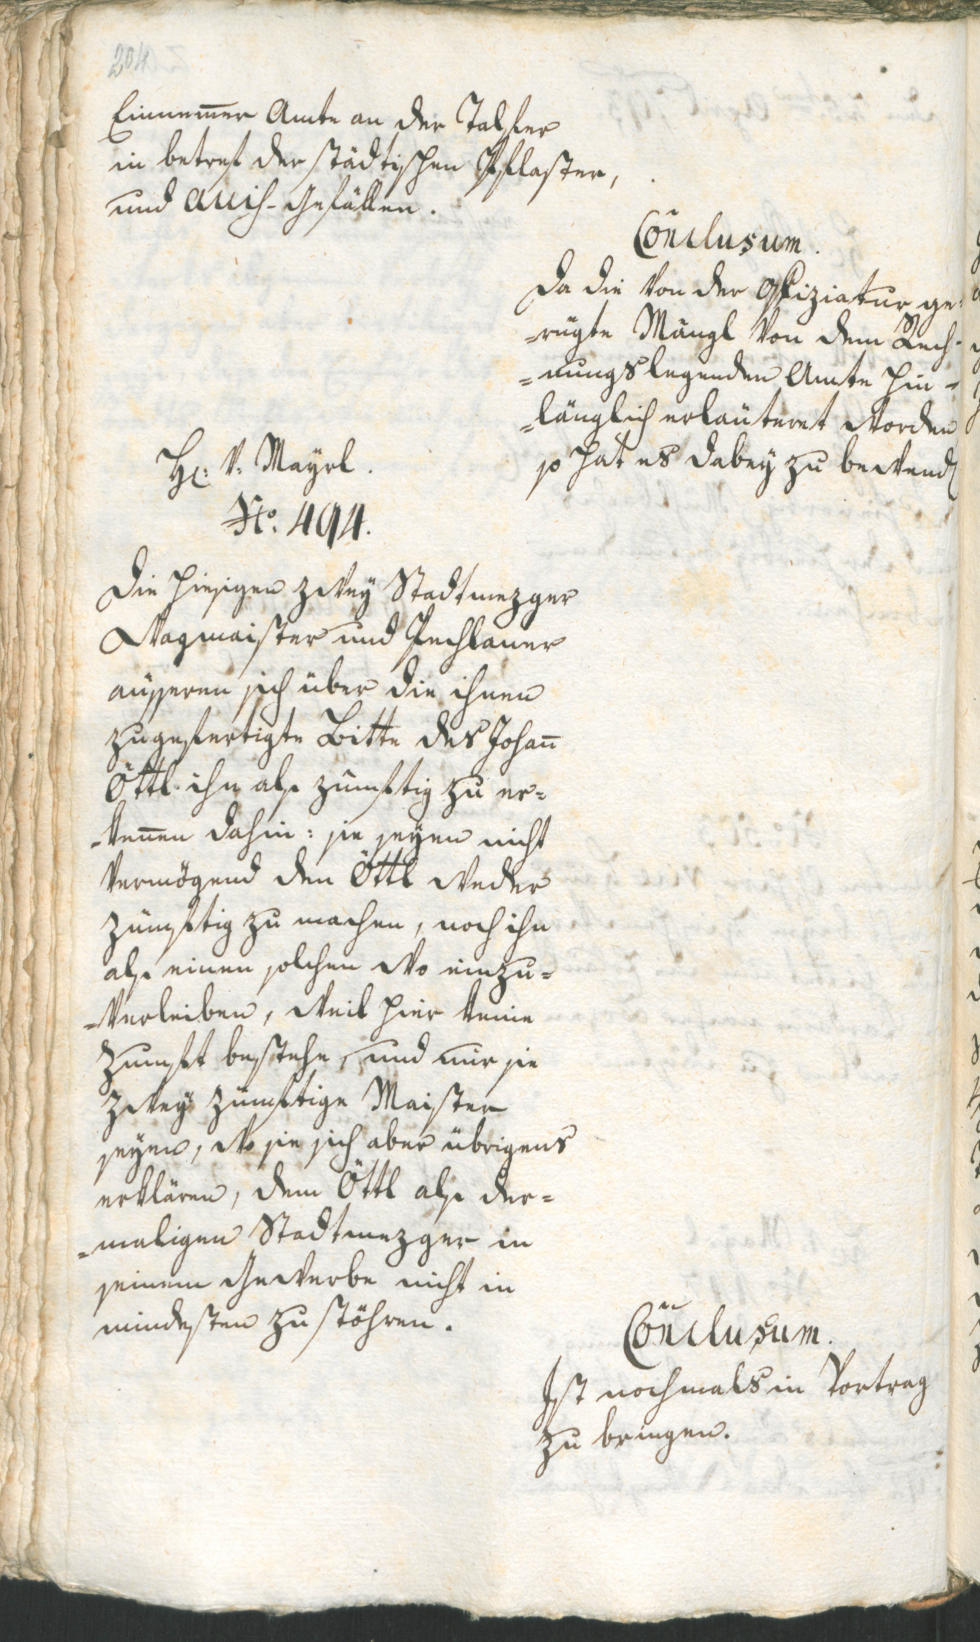 204
Einnem̄er Amte an der Talfer
in betref der städtischen Pflaster,
und Aich-Gefällen.
Con̄clusum.
Da die von der Offiziatur ge-
-rügte Mängl von dem Rech-
-nungslegenden Amte hin-
-länglich erläuteret worden
so hat es dabey zu bewend
H: v: Mayrl.
No. 494.
Die hiesigen zwey Stadtmezger
Wagmaister und Pechlaner
aüsseren sich über die ihnen
zugefertigte Bitte des Johan̄
Öttl ihn als zünftig zu er-
-ken̄en dahin: sie seyen nicht
vermögend den Öttl weder
zünftig zu machen, noch ihn
als einen solchen wo einzu-
-verleiben, weil hier keine
Zunft bestehe, und nur sie
zwey zünftige Maister
seyen, wo sie sich aber übrigens
erklären, dem Öttl als der-
-maligen Stadtmezger in
seinem Gewerbe nicht in
mindesten zu stöhren.
Con̄clusum.
Ist nochmals in Vortrag
zu bringen.